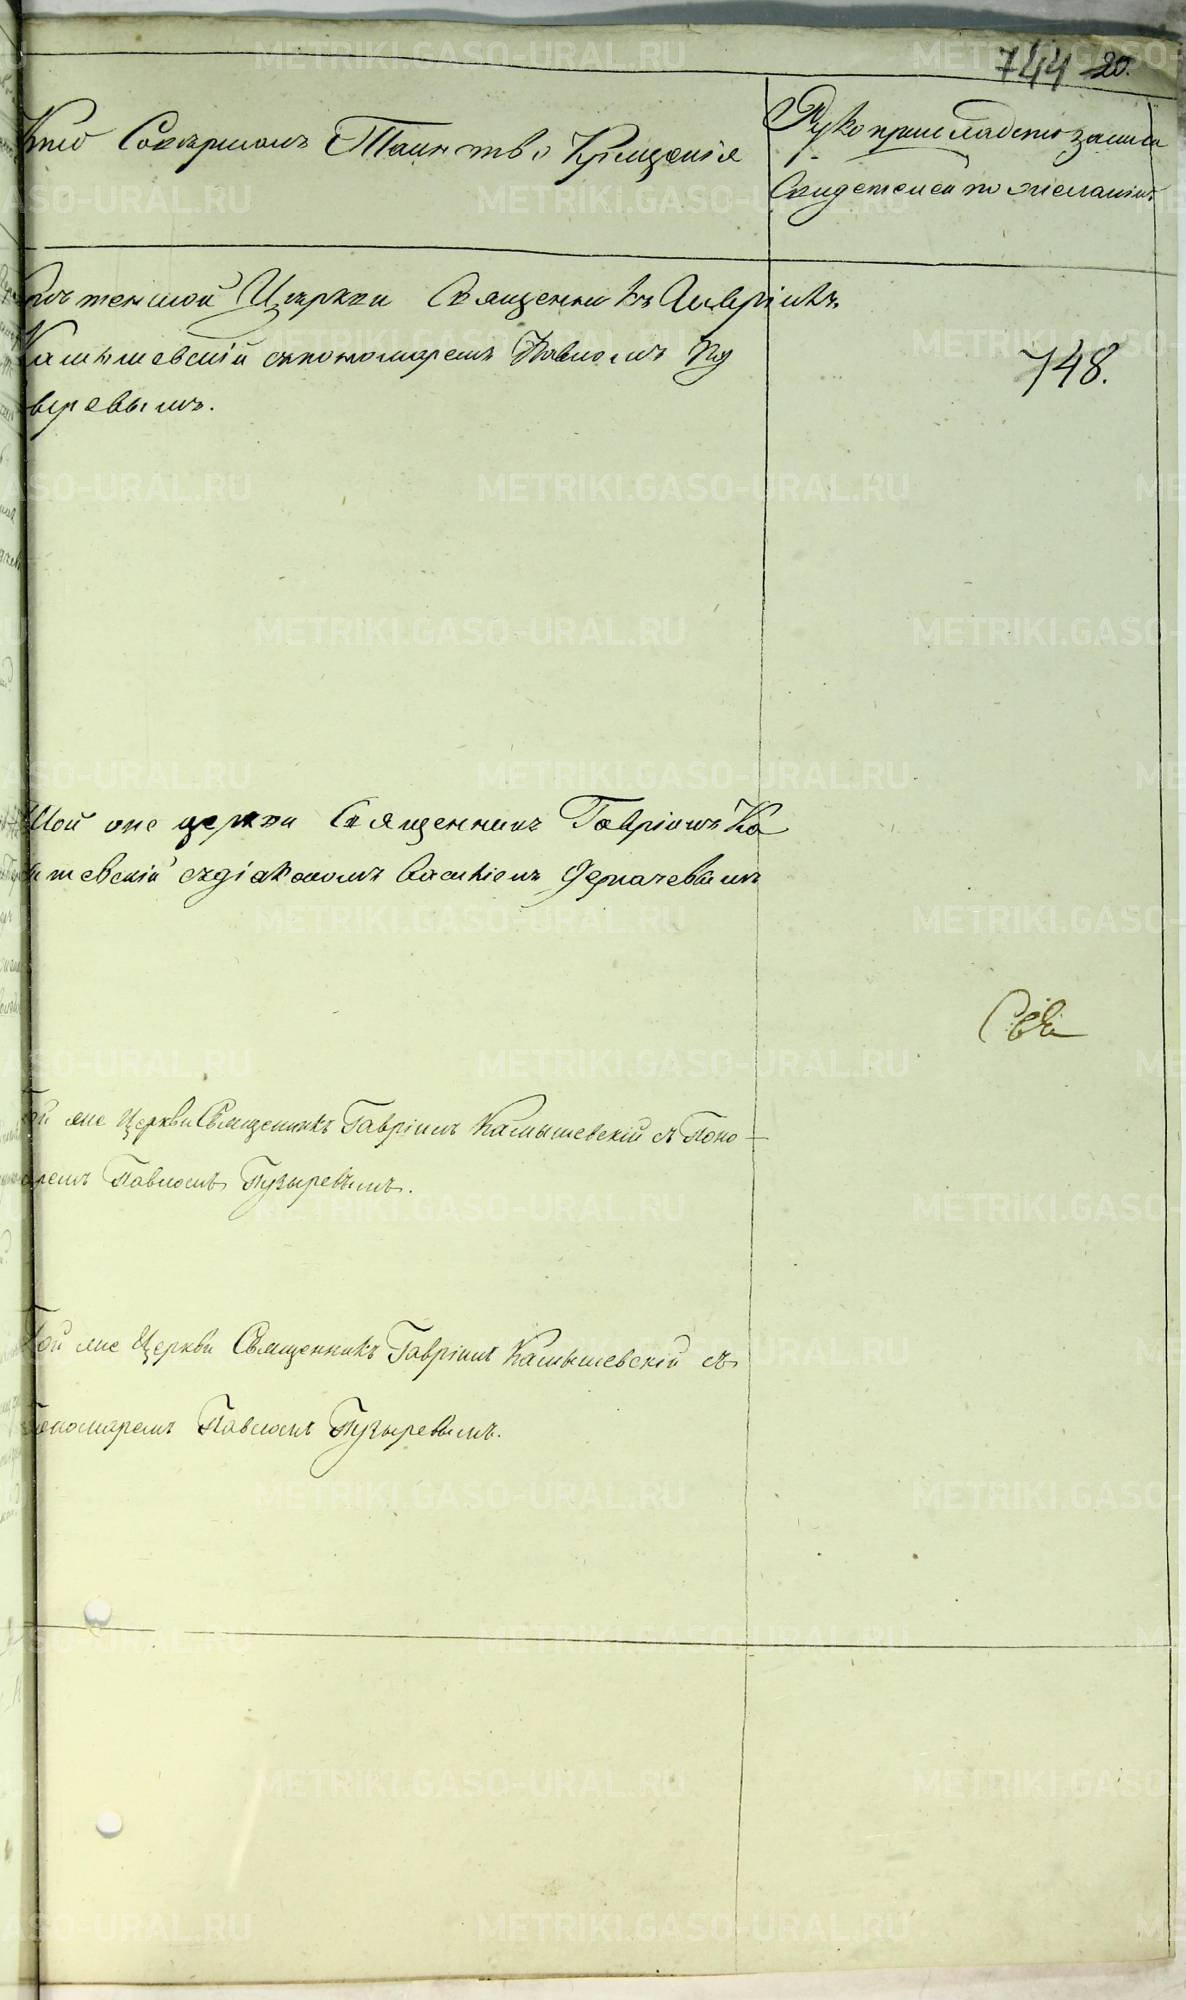 744 20.
Кто Совершалъ Таинство Крещенія
Рукоприкладство записи
свидетелей по желанію
Церкви Священникъ Гавріилъ
Камышевскій съ пономаремъ Павломъ Пу
зыревымъ.
748.
Той же церкви Священникъ Гавріилъ Ка
мышевскій съ діакономъ Василіемъ
Той же Церкви Священникъ Гавріилъ Камышевскій съ Поно-
маремъ Павломъ Пузыревымъ.
Той же Церкви Священникъ Гавріилъ Камышевскій съ
Пономаремъ Павломъ Пузыревымъ.
METRIKI.GASO-URAL.RU